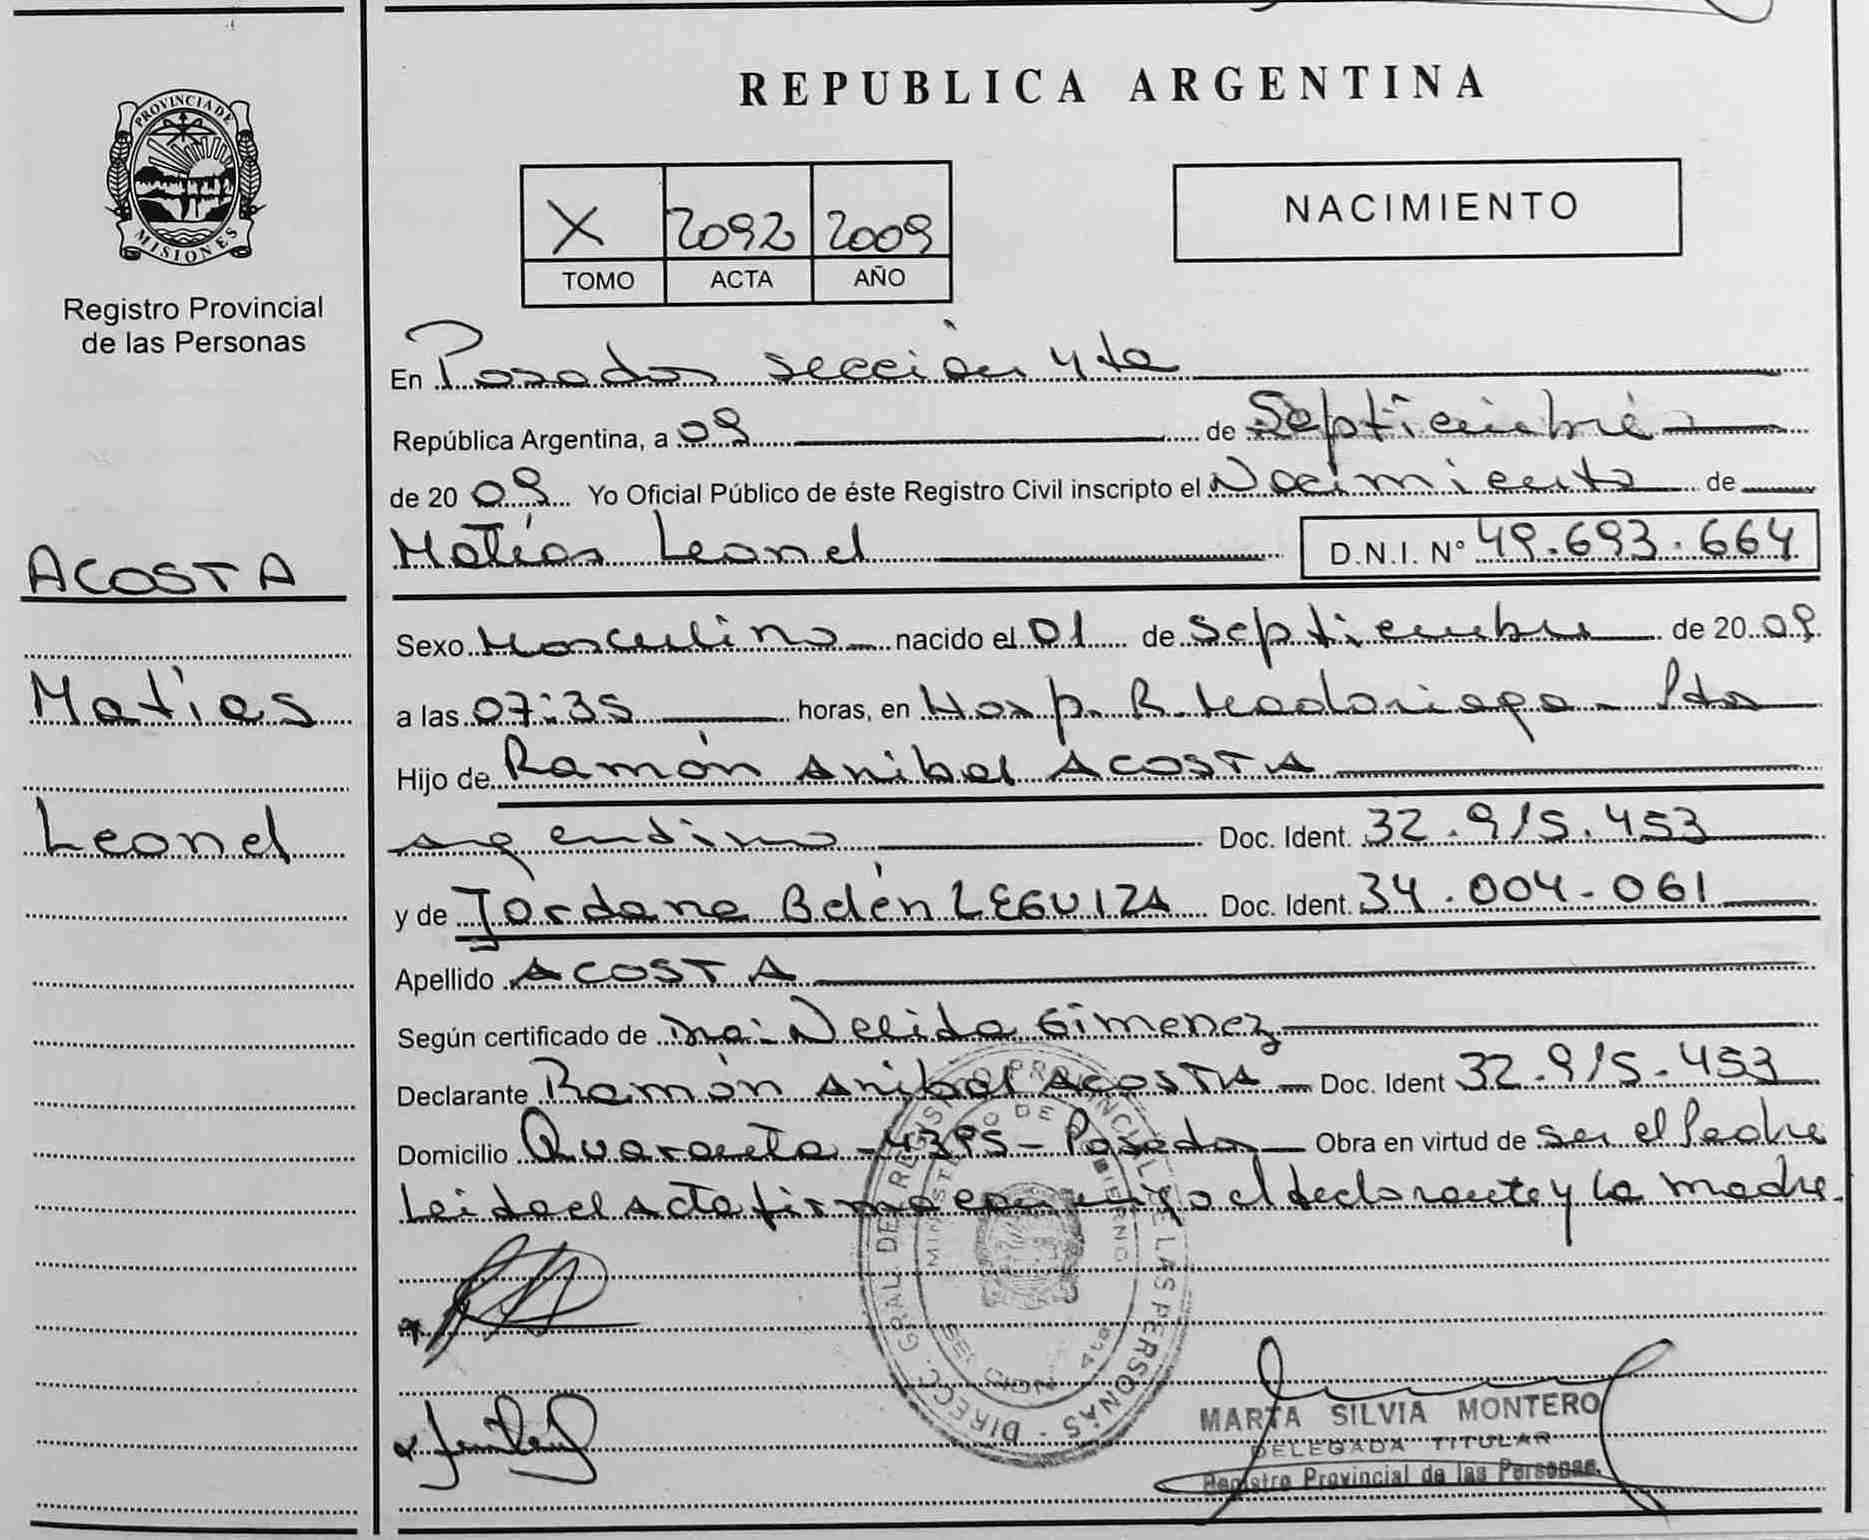 PROVINCIA DE
MISIONES
Registro Provincial
de las Personas
ACOSTA
Matías
Leonel
REPUBLICA ARGENTINA
X 2092 2009
TOMO ACTA AÑO
NACIMIENTO
En Posadas sección 4ta
República Argentina, a 09 de Septiembre
de 2009 Yo Oficial Público de éste Registro Civil inscripto el Nacimiento de
Matías Leonel D.N.I. Nº 49.693.664
Sexo Masculino nacido el 01 de Septiembre de 2009
a las 07:35 horas, en Hosp. R. Madariaga - Pdas
Hijo de Ramón Anibal ACOSTA
argentino Doc. Ident. 32.915.453
y de Jordana Belén LEGUIZA Doc. Ident. 34.004.061
Apellido ACOSTA
Según certificado de Dra: Nelida Gimenez
Declarante Ramón Anibal ACOSTA Doc. Ident 32.915.453
Domicilio Quaranta - 4395 - Posadas Obra en virtud de ser el Padre
Leida el Acta firma conmigo el declarante y la madre.
DIRECC. GRAL. DE REGISTRO PROVINCIAL DE LAS PERSONAS
MINISTERIO DE GOBIERNO
SECCION 4ta
MARTA SILVIA MONTERO
DELEGADA TITULAR
Registro Provincial de las Personas